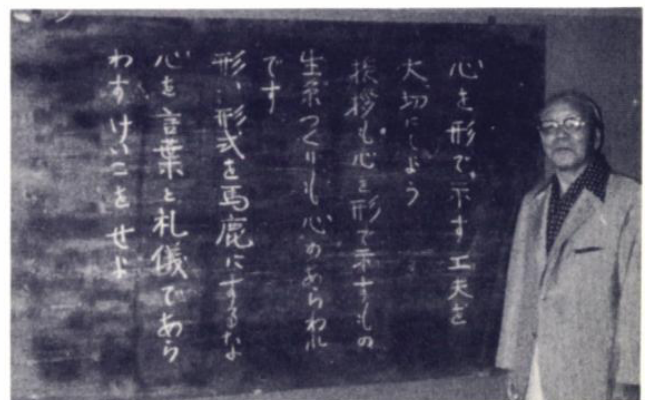 心を形で示す工夫を
大切にしよう
挨拶も心を形で示すもの
生糸つくりも心のあらわれ
です
形、形式を馬鹿にするなよ
心を言葉と礼儀であら
わすけいこをせよ